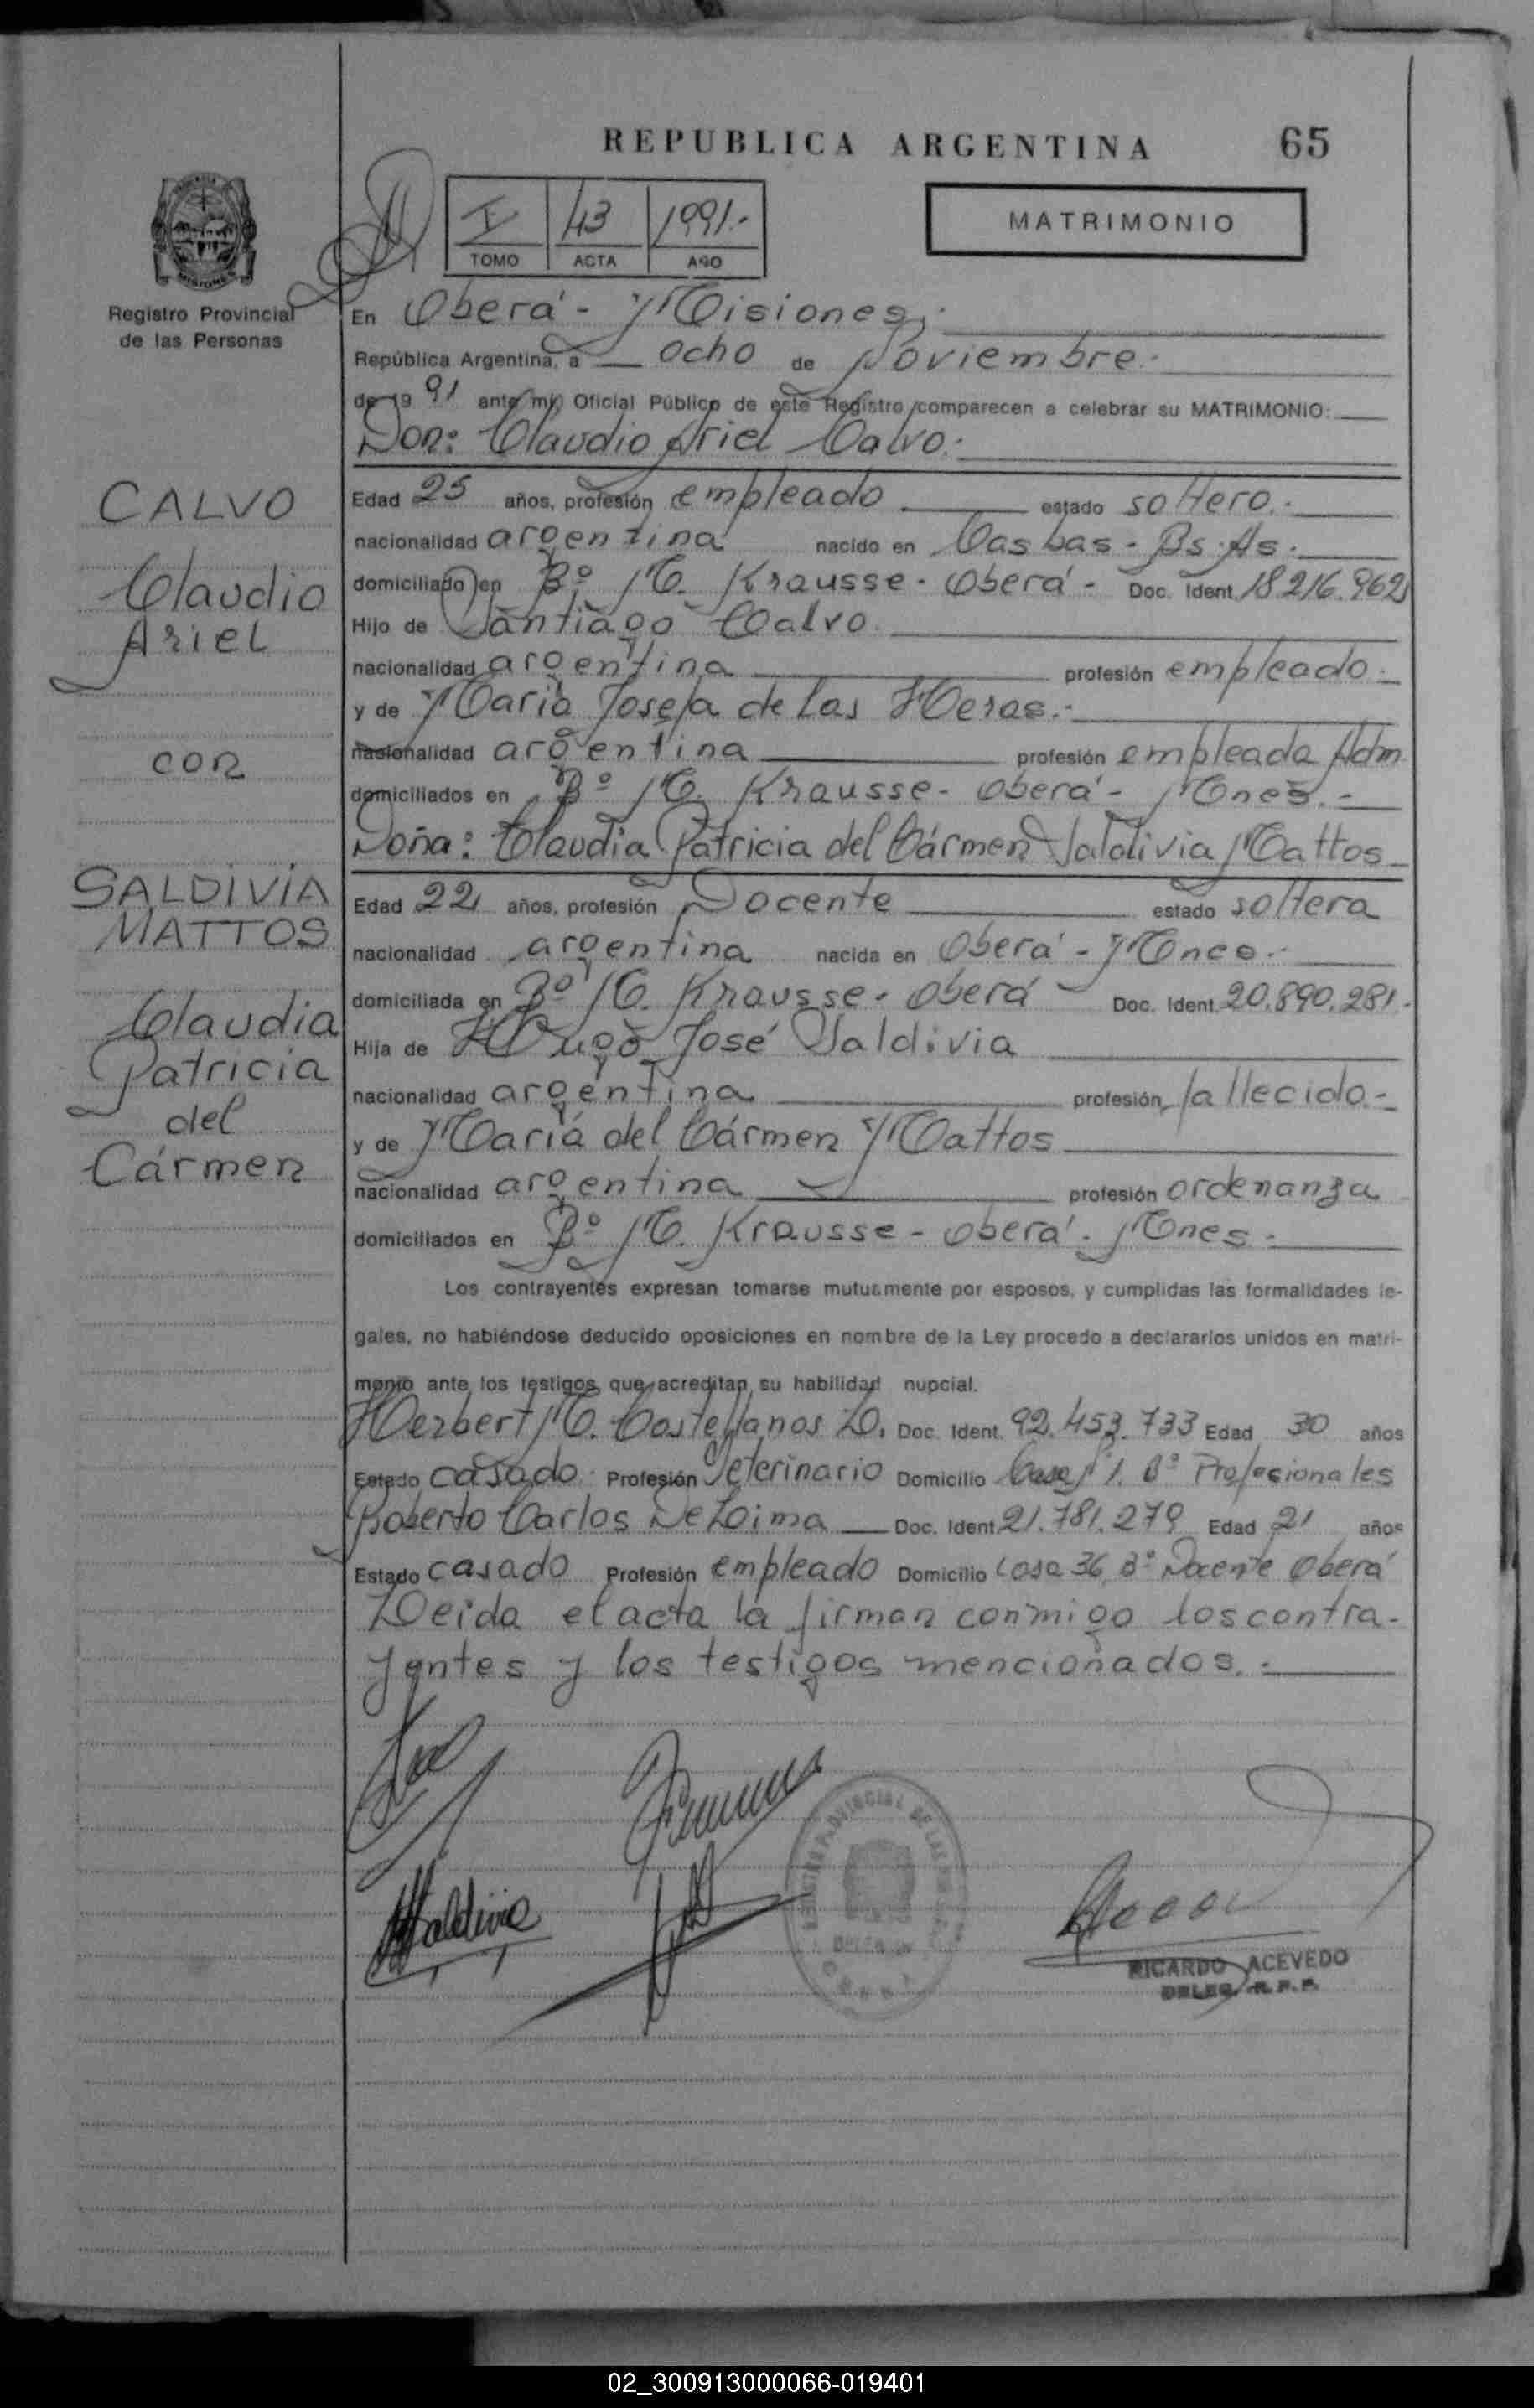 REPUBLICA ARGENTINA 65
MATRIMONIO
I 43 1991.-
TOMO ACTA AÑO
Registro Provincial
de las Personas
En Oberá - Misiones,.
República Argentina, a ocho de Noviembre.-
de 19 91 ante mí, Oficial Público de este Registro comparecen a celebrar su MATRIMONIO:
Don: Claudio Ariel Calvo.-
CALVO
Claudio
Ariel
con
SALDIVIA
MATTOS
Claudia
Patricia
del
Cármen
Edad 25 años, profesión empleado estado soltero.-
nacionalidad argentina nacido en Casbas - Bs. As.-
domiciliado en Bº M. Krausse - Oberá - Doc. Ident. 18.216.962
Hijo de Santiago Calvo.
nacionalidad argentina profesión empleado.-
y de María Josefa de Las Heras.-
nacionalidad argentina profesión empleada Adm.
domiciliados en Bº M. Krausse - Oberá - Mnes.-
Doña: Claudia Patricia del Cármen Saldivia Mattos
Edad 22 años, profesión Docente estado soltera
nacionalidad argentina nacida en Oberá - Mnes.-
domiciliada en Bº M. Krausse - Oberá - Doc. Ident. 20.890.281.-
Hija de Hugo José Saldivia
nacionalidad argentina profesión fallecido.-
y de María del Cármen Mattos
nacionalidad argentina profesión ordenanza
domiciliados en Bº M. Krausse - Oberá - Mnes.-
Los contrayentes expresan tomarse mutuamente por esposos, y cumplidas las formalidades le-
gales, no habiéndose deducido oposiciones en nombre de la Ley procedo a declararlos unidos en matri-
monio ante los testigos que acreditan su habilidad nupcial.
Herbert M. Castellanos L. Doc. Ident. 92.453.733 Edad 30 años
Estado casado. Profesión Veterinario Domicilio Casa Nº 1. Bº Profesionales
Roberto Carlos De Lima Doc. Ident. 21.781.279 Edad 21 años
Estado casado Profesión empleado Domicilio Casa 36, Bº Docente Oberá
Leída el acta la firman conmigo los contra-
yentes y los testigos mencionados.-
Saldivia
REGISTRO PROVINCIAL DE LAS
RICARDO ACEVEDO
DELEG. R.P.P.
02_300913000066-019401